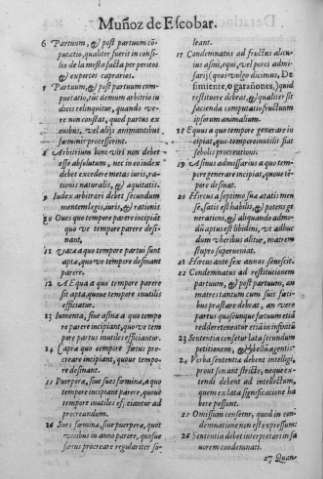 Muñoz de Escobar.
6 Partuum, & post partuum cō-
putatio, qualiter fuerit in consi-
lio de la mesta facta per peritos
& expertes caprarios.
7 Partuum, & post partuum com-
putatio, sic demum arbitrio in
dicis relinquitur, quando ve-
re non constat, quod partus ex
ouibus, vel alijs animantibus
fœminis processerint.
8 Arbitrium boni viri non debet
esse absolutum, nec in eo index
debet excedere metas iuris, ra-
tionis naturalis, & æquitatis.
9 Iudex arbitrari debet secundum
mentem legis, iuris, & rationis.
10 Oues quo tempore parere incipiāt
quo ve tempore parere desi-
nant,
11 Vacca quo tempore partui sunt
apta, quo ve tempore desinant
parere.
12 AEqua quo tempore parere
sit apta, quo ve tempore inutilis
efficiatur.
13 Iumenta, siue asina a quo tempo
re parere incipiant, quo ve tem
pore partui inutiles efficiantur.
14 Capra quo tempore fœtus pro-
creare incipiant, quo ve tempo-
re desinant.
15 Puerpera, siue sues fœmina, a quo
tempore incipiant parere, quo ve
tempore inutiles efficiantur ad
procreandum.
16 Sues fœmina, siue puerpera, quot
vicibus in anno pariant, quos ve
fœtus procreare regulariter so-
leant.
17 Condemnatus ad fructus alicu-
ius asini, equi, vel porci admis-
sarij (quos vulgo dicimus, De
simiente, o garañones,) quid
restituere debeat, & qualiter sit
facienda computatio fructuum
ipsorum animalium.
18 Equus a quo tempore generare in
cipiat, quo tempore inutilis fiat
sobolis procreationi.
19 Asinus admissarius a quo tem-
pore generare incipiat, quo ve tē-
pore desinat.
20 Hircus a septimo sua ætatis men
se, satis est habilis, & potens ge
nerationi, & aliquando admo-
dum potens est libidini, vt adhuc
dum vberibus alitur, matrem
stupro superueniat.
21 Hircus ante sex annos senescit.
22 Condemnatus ad restitutionem
partuum, & post partuum, an
matres tantum cum suis fœti-
bus præstare debeat, an vero
partus quoscunque fœtuum etiā
reddere teneatur etiā in infinitū
23 Sententia censetur lata secundum
petitionem, & libelli agentis
24 Verba sententiæ debent intelligi,
prout sonant stricte, neque ex-
tendi debent ad intellectum,
quem ex lata significatione ha
bere possunt.
25 Omissum censetur, quod in con-
demnatione non est expressum.
26 Sententia debet interpretari in fa
uorem condemnati.
27 Quan-